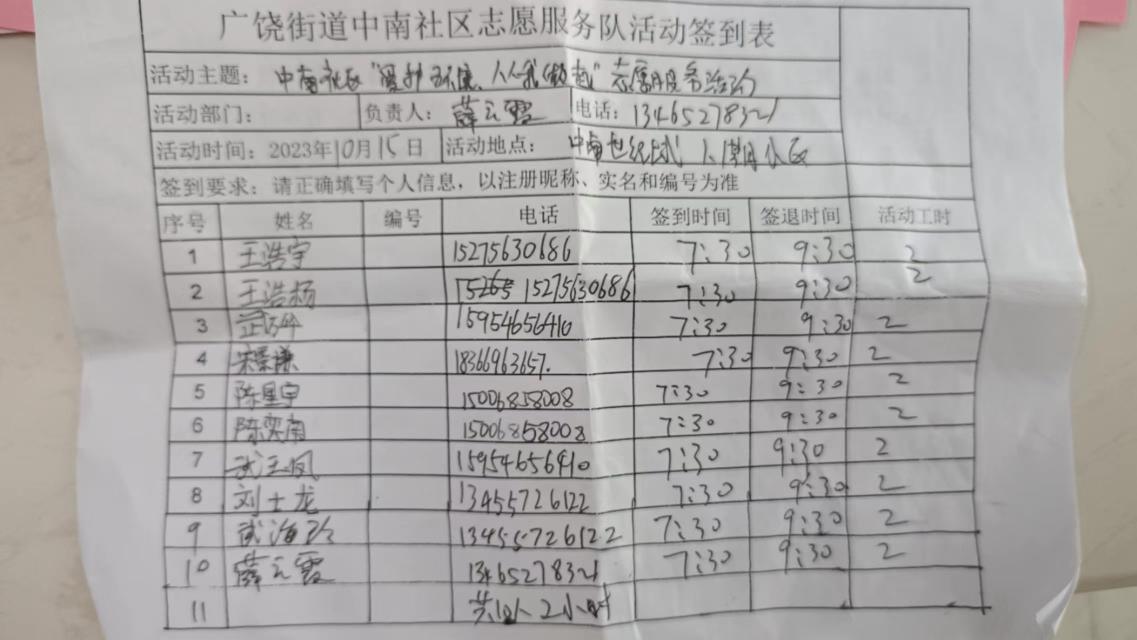 广饶街道中南社区志愿服务队活动签到表
活动主题: 中南社区"爱护环境、人人我做起"志愿服务活动
活动部门: 负责人: 薛云霞 电话: 13465278321
活动时间: 2023年10月15日 活动地点: 中南世纪城 1期小区
签到要求: 请正确填写个人信息,以注册昵称、实名和编号为准
序号 姓名 编号 电话 签到时间 签退时间 活动工时
1 王浩宇 15275630686 7:30 9:30 2
2 王浩杨 15275630686 7:30 9:30 2
3 15954656410 7:30 9:30 2
4 宋秉谦 18366963657. 7:30 9:30 2
5 陈星宇 15006858008 7:30 9:30 2
6 陈奕南 15006858008 7:30 9:30 2
7 武玉凤 15954656410 7:30 9:30 2
8 刘士龙 13455726122 7:30 9:30 2
9 武海玲 13455726122 7:30 9:30 2
10 薛云霞 13465278321 7:30 9:30 2
11 共10人 2小时